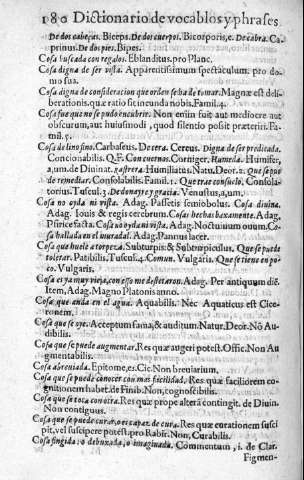 180 Dictionario de vocablos y phrases
De dos cabeças. Biceps. De dos cuerpos. Bicorporis, e. De cabra. Ca
prinus. De dos pies. Bipes.
Cosa buscada con regalos. Eblanditus. pro Planc.
Cosa digna de ser vista. Apparentissimum spectaculum. pro do
mo sua.
Cosa digna de consideracion que orden se ha de tomar. Magnæ est deli
berationis. quæ ratio sit incunda nobis. Famil. 4.
Cosa fue que no se pudo encubrir. Non enim fuit aut mediocre aut
obscurum, aut huiusmodi, quod silentio posit præteriri. Fa
mil. 5.
Cosa de lino fino. Carbaseus. De cera. Cereus. Digna de ser predicada.
Concionabilis. Q. F. Con cuernos. Corniger. Humeda. Humifer,
a, um. de Diuinat. rastrera. Humiliatus. Natu. Deor. 1. Que se pue
de remediar. Consolabilis. Famil. 1. Que trae consuelo. Consola-
torius. Tuscul. 3. De donayre y gracia. Venustus, a, um,
Cosa no oyda ni vista. Adag. Passetis semiobolus. Cosa diuina.
Adag. Iouis & regis cerebrum. Cosas hechas baxamente. Adag,
Psirice facta. Cosa no oyda ni vista. Adag. Noctuinum ouum. Co
sa hallada en el muradal. Adag. Pannus lacer.
Cosa que huele a torpeza. Subturpis & Subturpiculus. Que se puede
tolerar. Patibilis. Tuscul. 4. Comun. Vulgaris. Que se tiene en po-
co. Vulgaris.
Cosa es ya muy vieja, con esso me despertaron. Adag. Per antiquum diē.
Item, Adag. Magno Platonis anno.
Cosa que anda en el agua. Aquabilis. Nec Aquaticus est Cice-
ronem.
Cosa que se oye. Acceptum fama, & auditum. Natur. Deor. Nō Au-
dibilis.
Cosa que se puede augmentar. Res quæ augeri potest. Offic. Non Au
gmentabilis.
Cosa abreuiada. Epitome, es. Cic. Non breuiarium.
Cosa que se puede conocer con mas facilidad. Res quæ faciliorem co-
gnitionem habet. de Finib. Non, cognoscibilis.
Cosa que se toca con otra. Res quæ prope alterā contingit. de Diuin.
Non contiguus.
Cosa que se puede curar, o es capaz de cura. Res quæ curationem susci
pit, vel suscipere potest. pro Rabir. Non, Curabilis.
Cosa fingida: o debuxada, o imaginada. Commentum, i. de Clar.
Figmen-